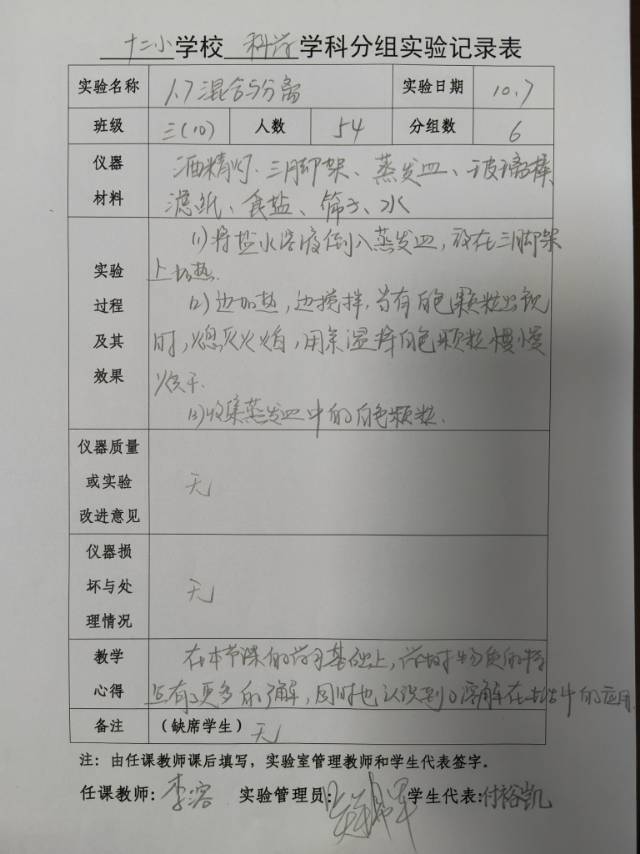 十二小学校 科学学科分组实验记录表
实验名称 1.7混合与分离 实验日期 10.7
班级 三(10) 人数 54 分组数 6
仪器 酒精灯、三脚架、蒸发皿、玻璃棒
材料 滤纸、食盐、筛子、水
(1)将盐水溶液倒入蒸发皿,放在三脚架
实验 上加热.
过程 (2)边加热,边搅拌,当有白色颗粒出现
及其 时,熄灭火焰,用余温将白色颗粒慢慢
效果 烘干.
(3)收集蒸发皿中的白色颗粒.
仪器质量
或实验 无
改进意见
仪器损
坏与处 无
理情况
教学 在本节课的学习基础上,学生对物质的特
心得 有了更多的了解,同时也认识到了溶解在生活中的应用
备注 (缺席学生) 无
注:由任课教师课后填写,实验室管理教师和学生代表签字。
任课教师:李容 实验管理员: 学生代表:付裕凯